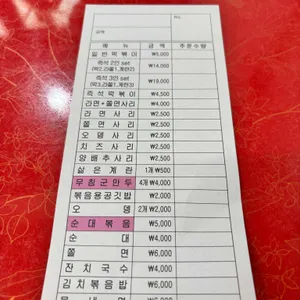 No.
금액
메 뉴 금 액 주문수량
일 반 떡 볶 이 ₩3,000
즉석 2인 set ₩14,000
(떡2,라쫄1,계란2)
즉석 3인 set ₩19,000
(떡3,라쫄1,계란3)
즉 석 떡 볶 이 ₩4,500
라면+쫄면사리 ₩4,000
라 면 사 리 ₩2,500
쫄 면 사 리 ₩2,500
오 뎅 사 리 ₩2,500
치 즈 사 리 ₩2,500
양 배 추 사 리 ₩2,500
삶 은 계 란 1개 ₩500
무 침 군 만 두 4개 ₩4,000
볶음용공깃밥 ₩2,000
오 뎅 2개 ₩2,000
순 대 볶 음 ₩5,000
순 대 ₩4,000
쫄 면 ₩6,000
잔 치 국 수 ₩4,000
김 치 볶 음 밥 ₩6,000